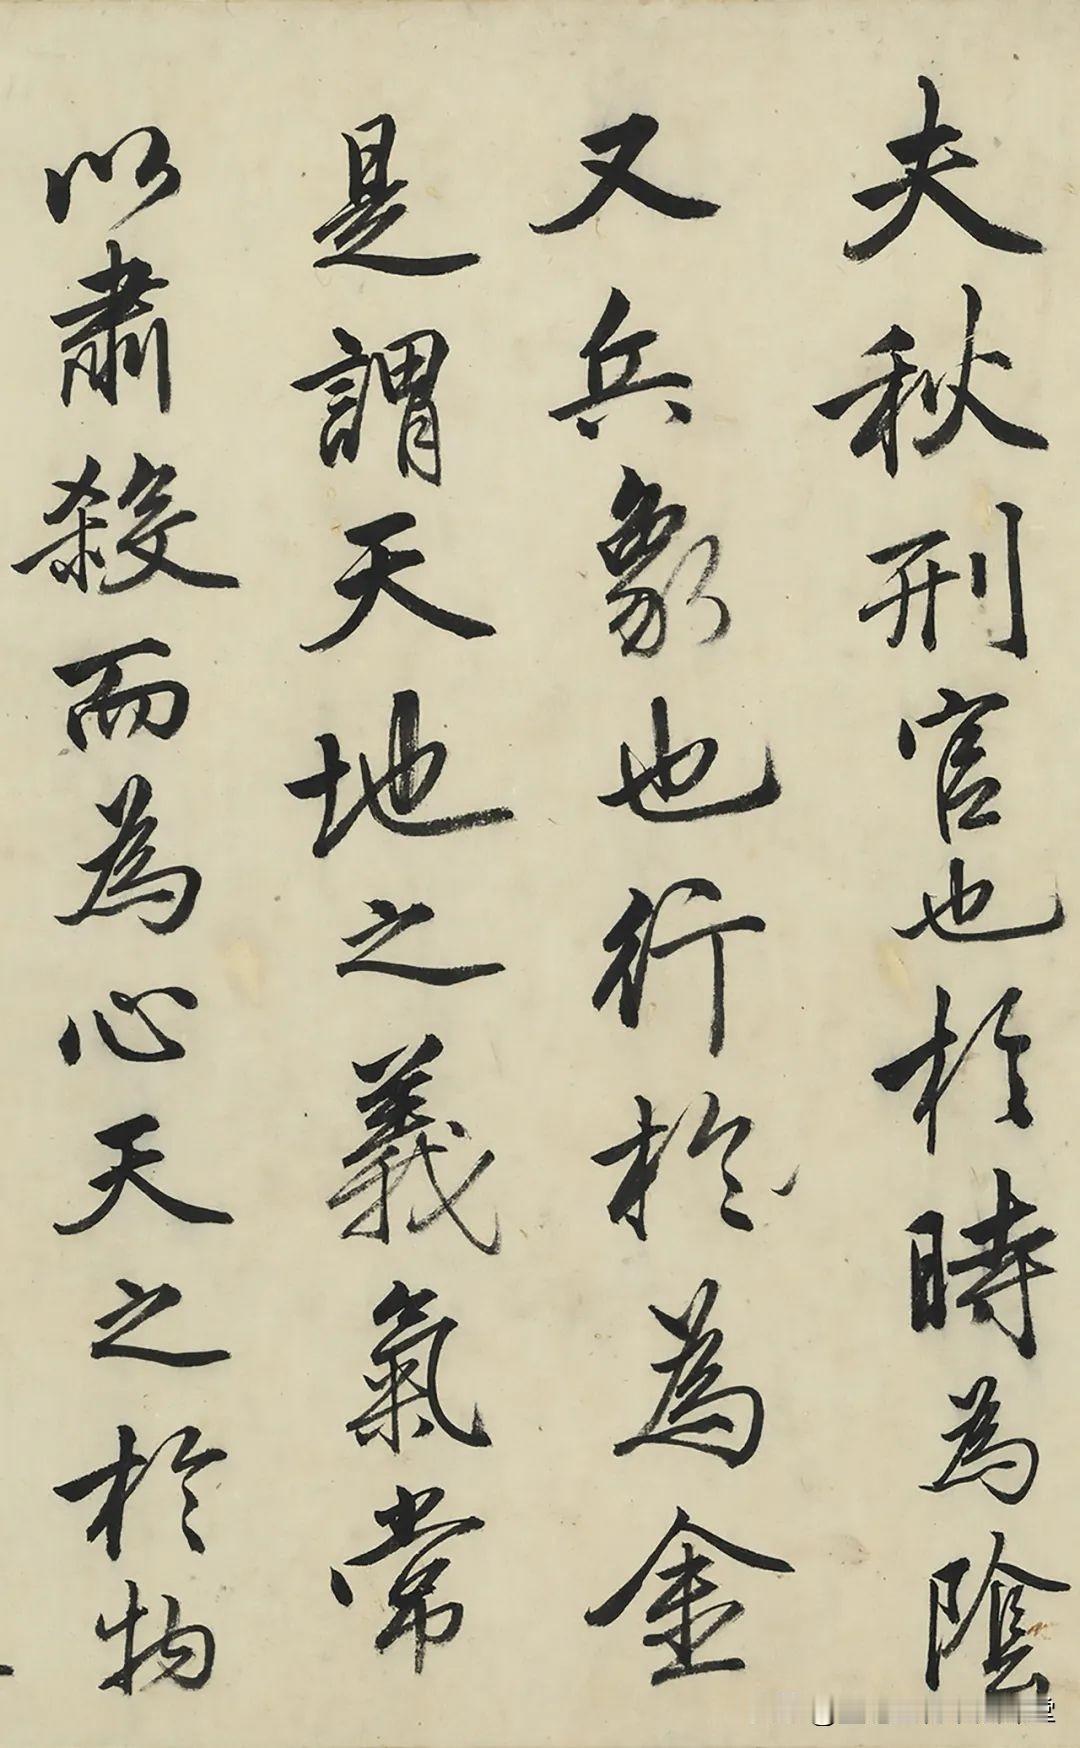 夫秋刑官也於時為陰
又兵象也行於為金
是謂天地之義氣常
以肅殺而為心天之於物